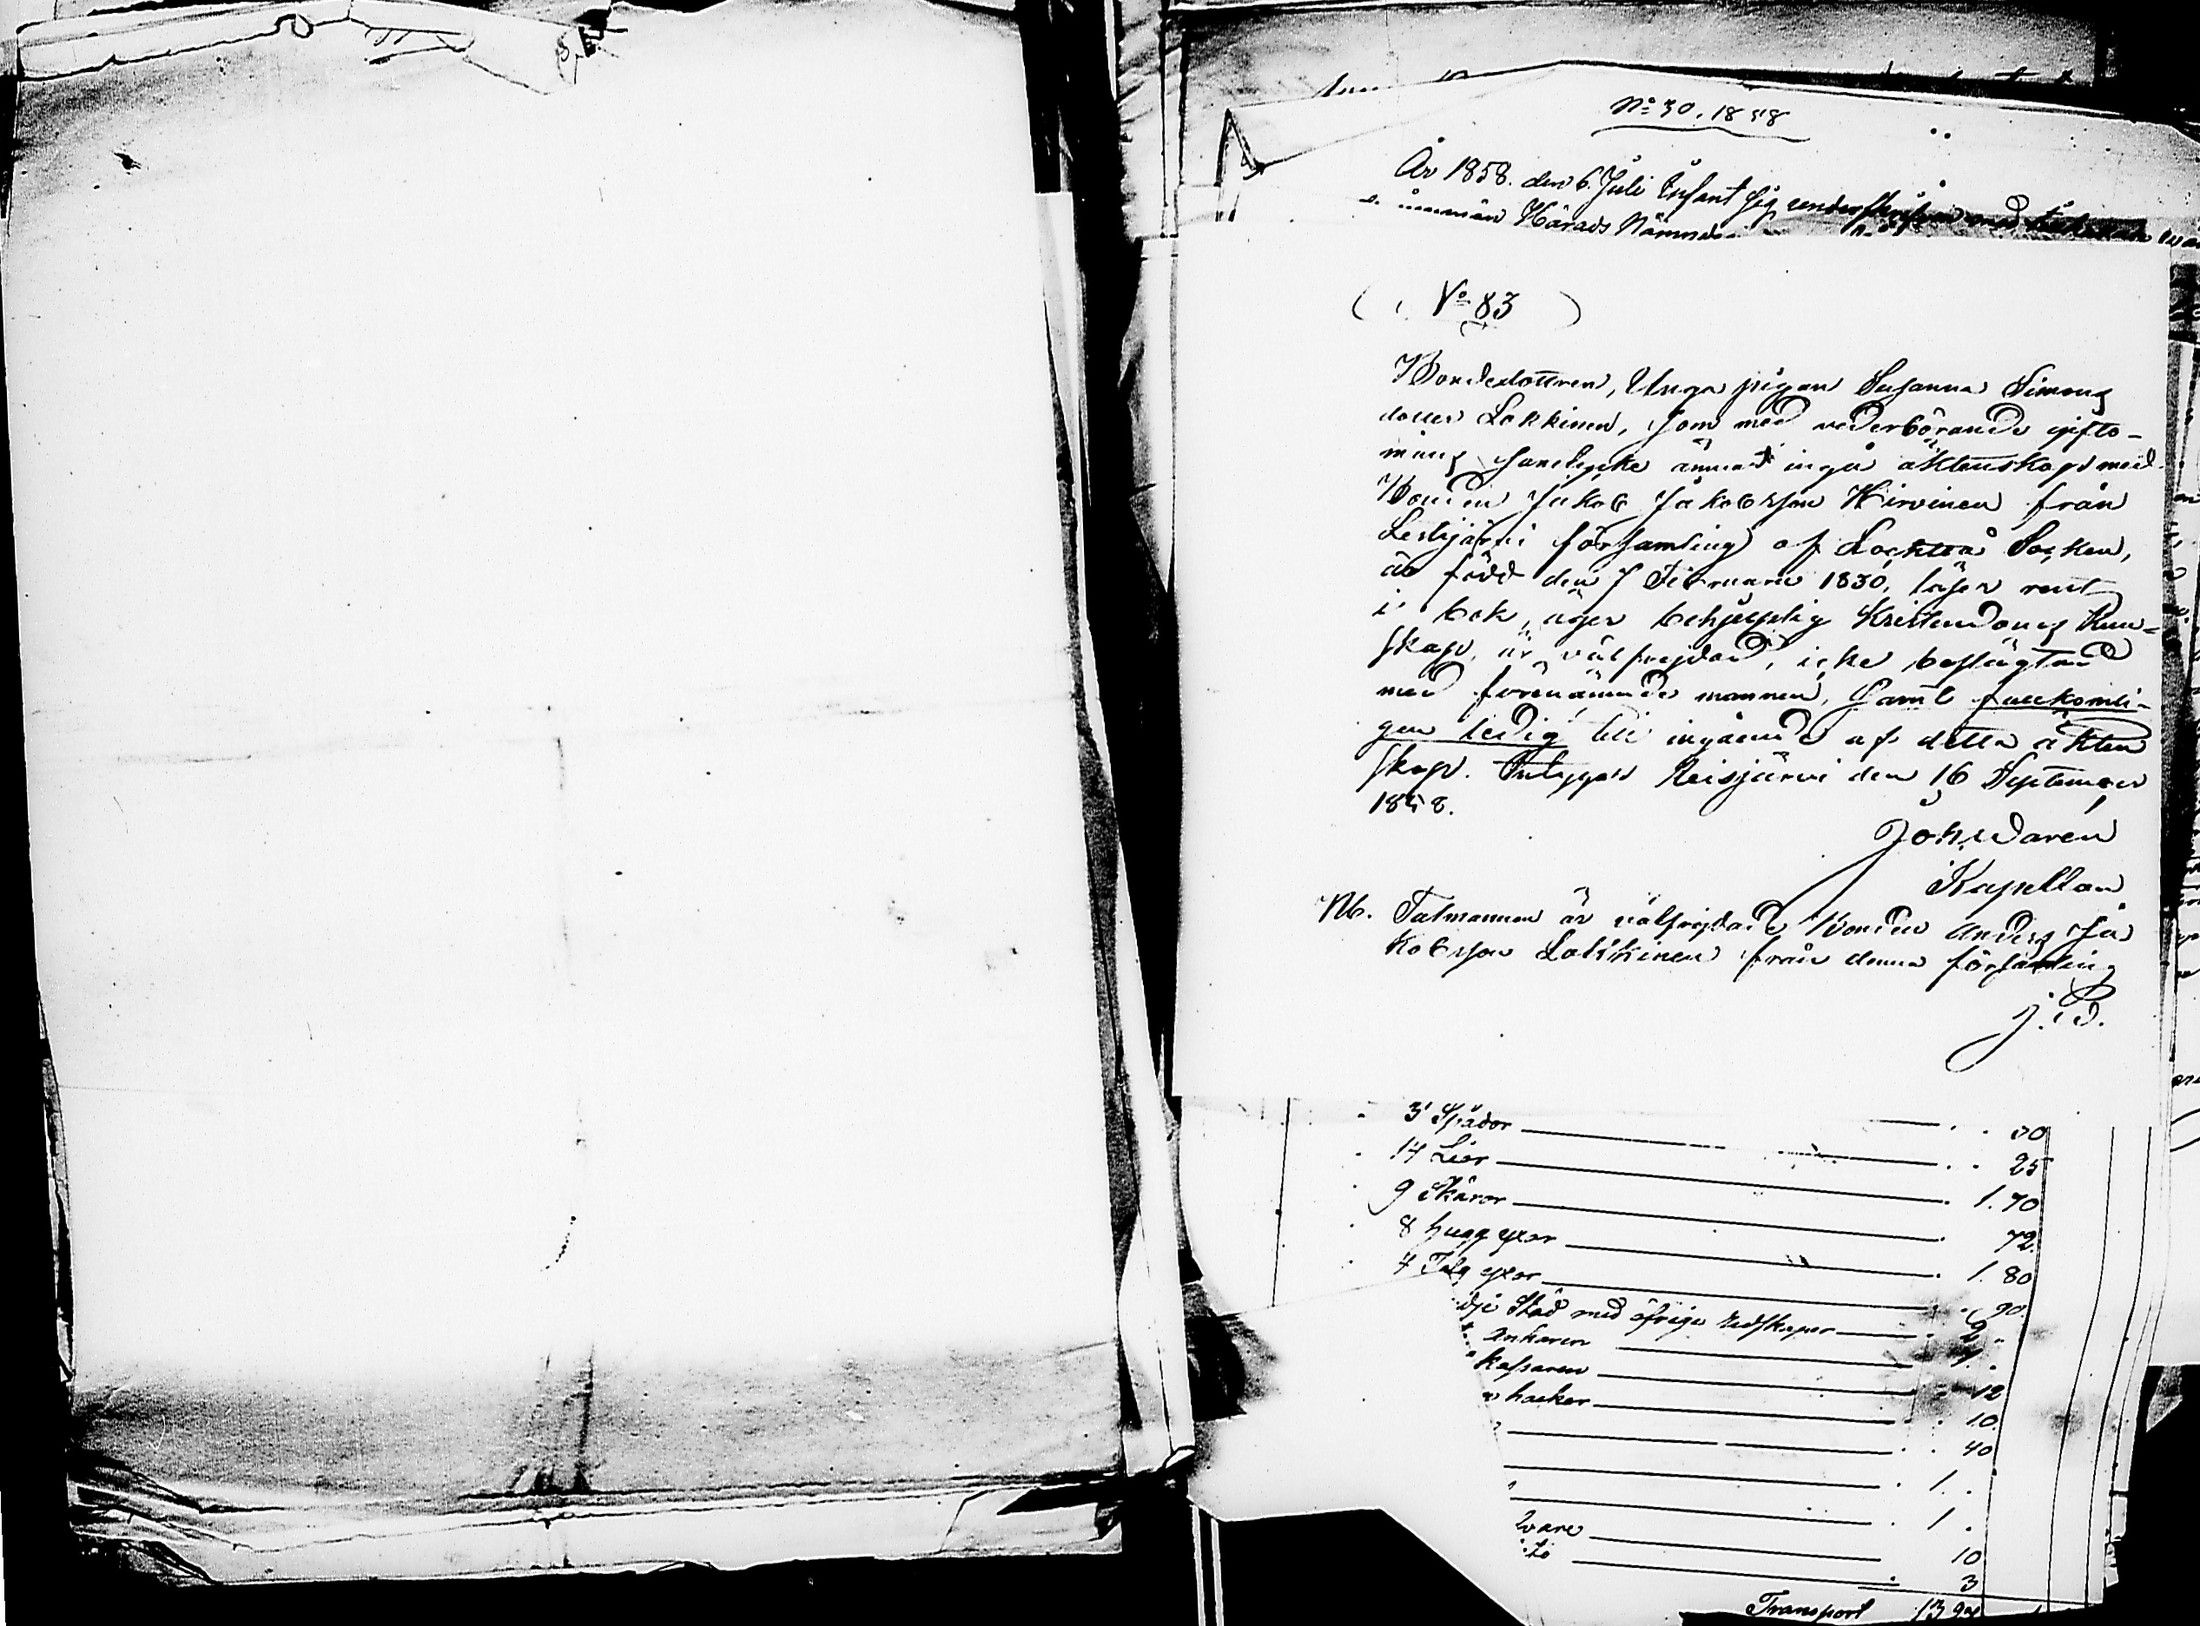 No 30. 1858
År 1858. den 6 Juli infant sig undertecknad med
Härads Nämnde
No 83
Bondedottren, Unga pigan Susanna Simons
dotter Lokkinen, som med vederbörande gifto-
mans samtycke ämnar ingå äktenskap med
Bonden Jakob Jakobsson Hirvinen från
Lestijärvi församling af Lochteå Socken,
är född den 7 Februari 1830, läser rent
i bok, äger behjelplig Kristendoms kun-
skap, är välfrejdad, icke beslägtad
med förenämnde mannen, samt fullkomli-
gen ledig till ingående af detta äkten
skap. Intygar Reisjärvi den 16 September
1858.
Joh. Daren
Kapellan
Nb. Talmannen är välfrejdade Bonden Anders Ja
kobsson Lokkinen från denna församling
J. D.
3 Spådor 50
14 Lier 25
9 Skäror 1. 70
8 hugg yxor 72
4 Tälg yxor 1. 80
Städ med öfriga redskaper 90
Ankaren 2
Kassaren
hackor 12
10
40
1.
1.
10
3
Transport 13 94